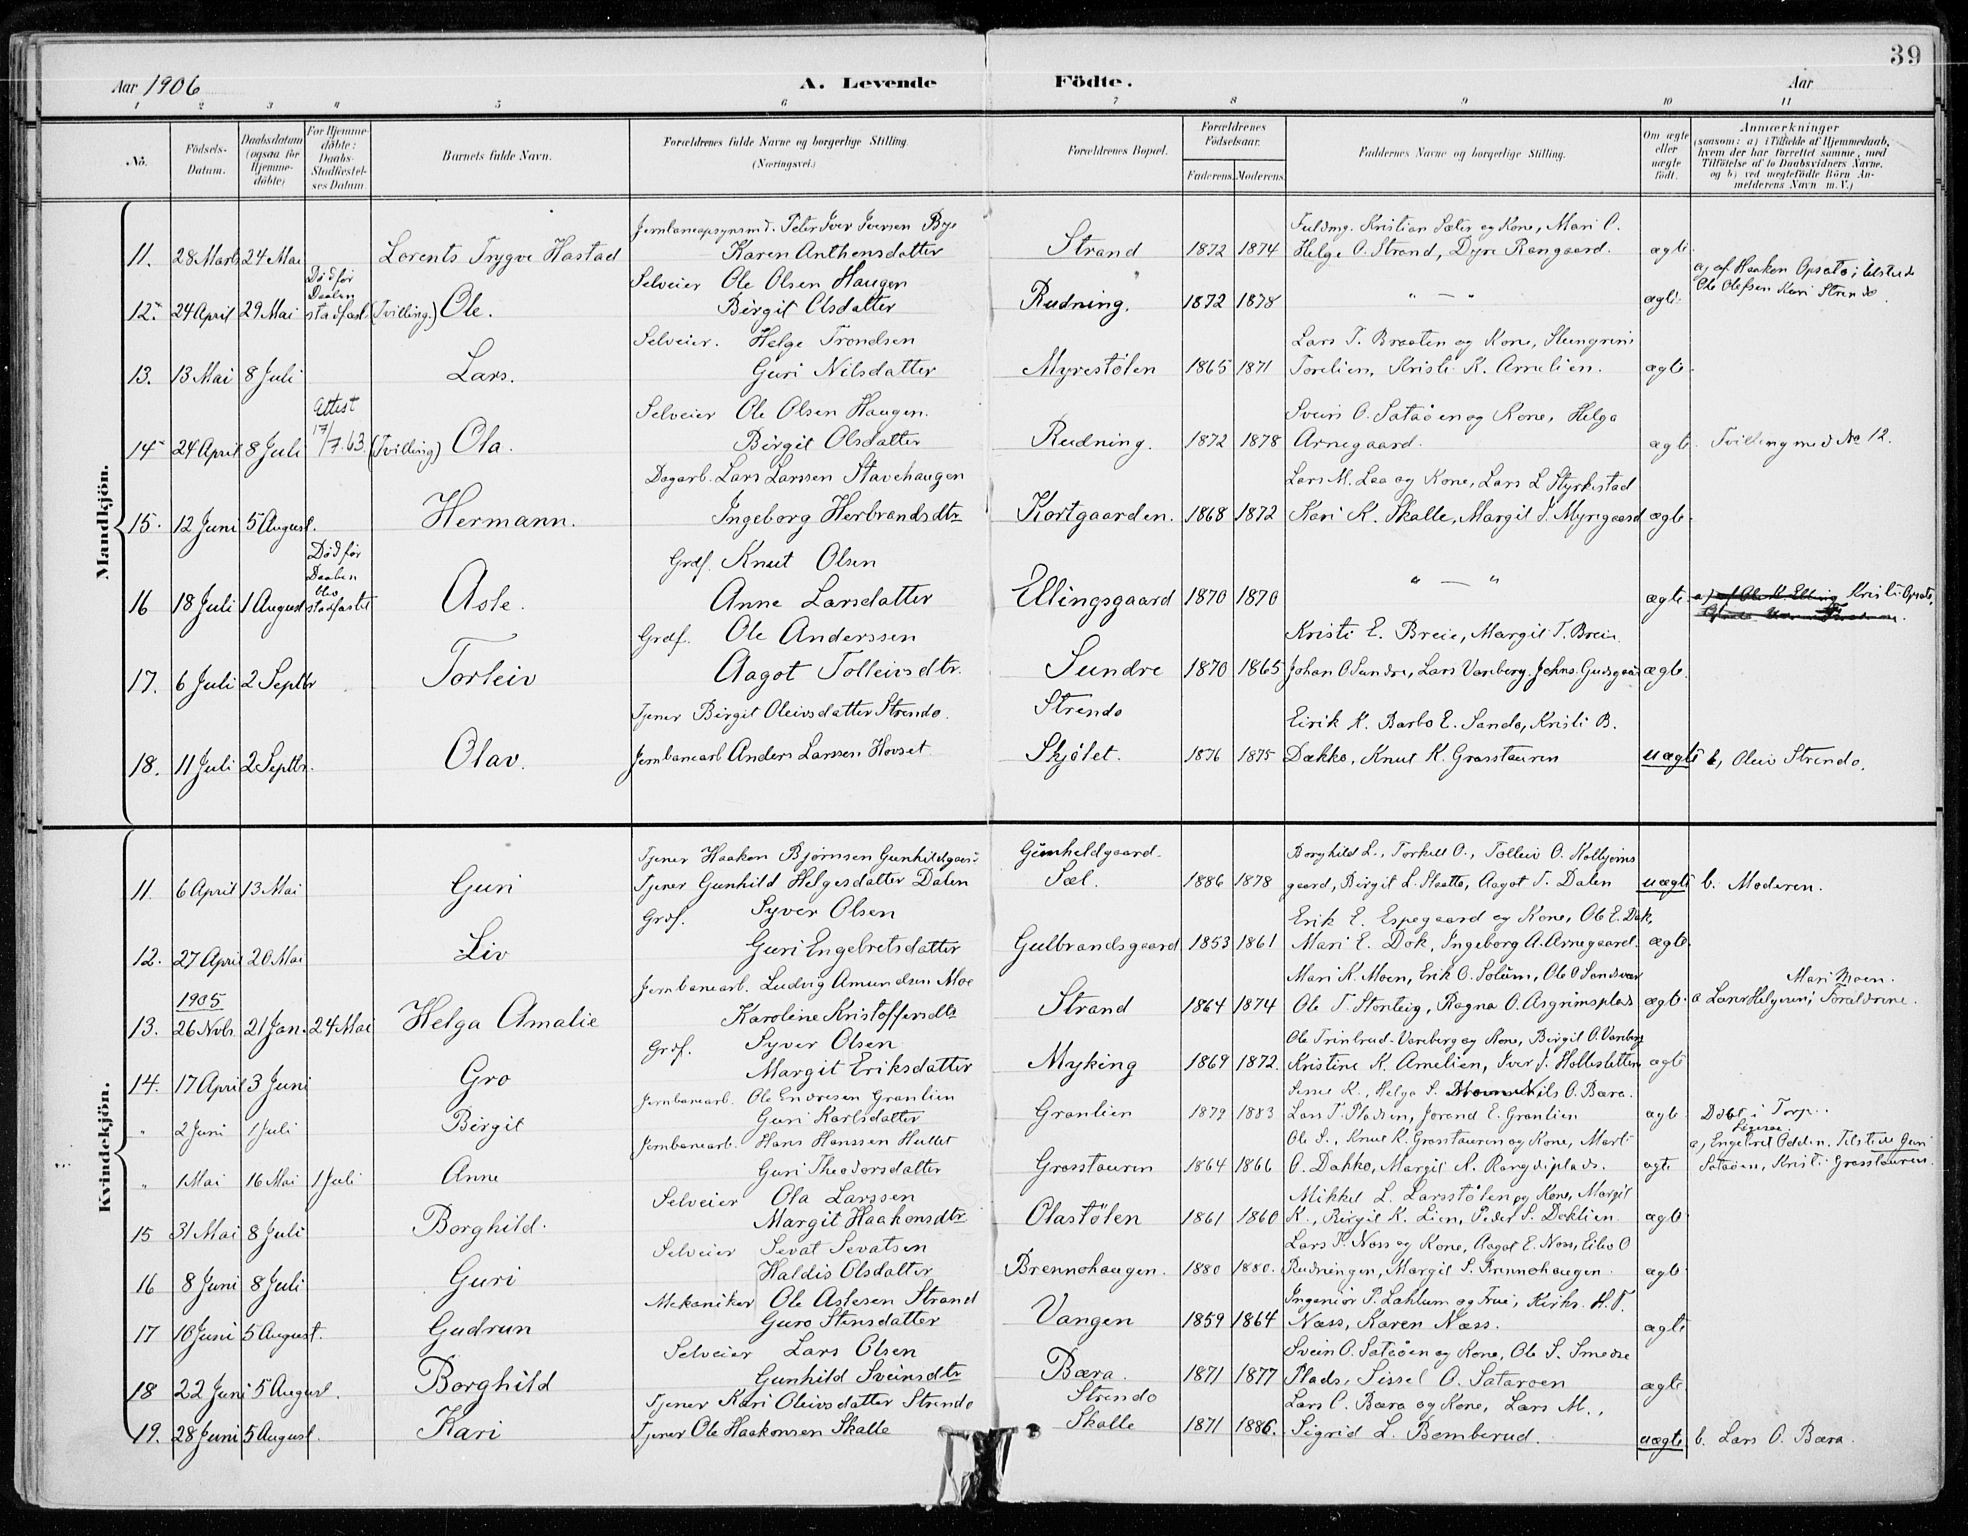 39
Aar 1906 A. Levende Födte. Aar
1 2 3 4 5 6 7 8 9 10 11
No. Födsels-Datum. Daabsdatum (ogsaa for Hjemme-döbte) For Hjemme-döbte: Daabs-Stadfæstel-ses Datum Barnets fulde Navn. Forældrenes fulde Navne og borgerlige Stilling. (Næringsvei.) Forældrenes Bopæl. Forældrenes Födselsaar. Faderens. Moderens. Faddernes Navne og borgerlige Stilling. Om ægte eller uægte födt. Anmærkninger (saasom: a) i Tilfælde af Hjemmedaab, hvem der har forrettet samme, med Tilföielse af to Daabsvidners Navne, og b) ved uægtefödte Börn An-melderens Navn m. V.)
Mandkjön.
Jernbaneopsynsmd. Peter Iver Iversen Bye Fuldmg. Kristian Sæter og Kone, Mari O.
11. 28 Marts 24 Mai Lorents Trygve Hastad Karen Anthensdatter Strand 1872 1874 Helge O. Strand, Dyre Rangaard. ægte
Død før Daaben Selveier Ole Olsen Haugen a, af Haaken Opsata; tilstede
12. 24 April 29 Mai stadfæst. (Tvilling.) Ole. Birgit Olsdatter Rudning. 1872 1878 " — " ægte. Ole Olefsen Kari Strendo.
Selveier. Helge Trondsen Lars T. Braaten og Kone, Steingrim
13. 13 Mai 8 Juli Lars. Guri Nilsdatter Myrestølen 1865 1871 Torelien, Kristi K. Arnelien. ægte
Attest Selveier Ole Olsen Haugen. Svein O. Sataøen og Kone, Helga
14 24 April 8 Juli 17/7.63. (Tvilling) Ola. Birgit Olsdatter Rudning. 1872 1878 Arnegaard. ægte Tvilling med No 12.
Dagarb. Lars Larssen Stavehaugen Lars M. Laa og Kone, Lars L Styrkestad
15. 12 Juni 5 August. Hermann. Ingeborg Herbrandsdtr Kortgaarden. 1868 1872 Kari K. Skalle, Margit S. Myregaard ægte
Død før Daaben blev Grdf. Knut Olsen
16 18 Juli 1 August stadfæstet Asle. Anne Larsdatter Ellingsgaard 1870 1870 " — " ægte Kristi Opsata,
Grdf. Ole Anderssen Kristi E. Breie, Margit T. Breie
17. 6 Juli 2 Septbr Torleiv Aagot Tolleivsdtr. Sundre 1870 1865 Johan O Sundre, Lars Vareberg. Johns. Gudsgaard ægte
Tjener Birgit Oleivsdatter Strendo. Strendo Eirik K. Barbo E. Sando, Kristi B.
18. 11 Juli 2 Septbr. Olav. Jernbanearb Anders Larssen Hovset Skjølet. 1876 1875 Dækko, Knut K. Grasstauren uægte b, Oleiv Strendo.
Kvindekjön.
Tjener Haakon Bjørnsen Gunhildgaard Gunheldgaard- Borghild L., Torkell O., Tolleiv O. Kolbjørns
11. 6 April 13 Mai Guri Tjener Gunhild Helgesdatter Dalen Sæl. 1886 1878 gaard, Birgit L. Slaatto, Aagot T. Dalen uægte b. Moderen.
Grdf. Syver Olsen Erik E. Espegaard og Kone, Ole E. Dok,
12. 27 April 20 Mai Liv Guri Engebretsdatter Gulbrandsgaard 1853 1861 Mari E. Dok, Ingeborg A. Arnegaard. ægte
1905 Jernbanearb. Ludvig Amundsen Moe Mari K. Moen, Erik O. Solum, Ole O Sandsvær Mari Moen.
13. 26 Novb. 21 Jan. 24 Mai Helga Amalie Karoline Kristoffersdtr Strand 1864 1874 Ole T. Storleig, Ragna O. Asgrimsplads ægte a Lars Helgeson; Forældrene.
Grdf. Syver Olsen Ole Trintrud-Vareberg og Kone, Birgit O. Vareberg
14. 17 April 3 Juni Gro Margit Eriksdatter Myking 1869 1872. Kristine K. Arnelien, Iver J. Hollestetten ægte
Jernbanearb. Ole Endresen Granlien Sissel K., Helga S. Nils O. Bæra.
" 2 Juni 1 Juli Birgit Guri Karlsdatter Granlien 1879 1883 Lars T. Pladsen, Jorend E. Granlien ægte Døbt i Torp.
Jernbanearb. Hans Hanssen Hullet Ole S., Knut K. Grasstauren og Kone, Marti a, Engebret Oddin. Tilstede Guri
" 1 Mai 16 Mai 1 Juli Anne Guri Theodorsdatter Grasstauren 1864 1866 O. Dakko, Margit K. Rangdiplads. ægte Sataøen, Kristi Grasstauren.
Selveier Ola Larssen Mikkel L. Larsstølen og Kone, Margit
15 31 Mai 8 Juli Borghild. Margit Haakonsdtr Olastølen 1861 1860 K., Birgit K. Lien, Peder S. Doklien ægte
Selveier Sevat Sevatsen Lars P. Næss og Kone, Aagot E. Næss, Eilev O
16 8 Juni 8 Juli Guri Haldis Olsdatter Brennohaugen. 1880 1880. Rudningen, Margit S. Brennohaugen. ægte
Mekaniker Ole Aslesen Strand Ingeniør P. Lahlum og Frue, Kirks. H. T.
17 10 Juni 5 August. Gudrun Guro Stensdatter Vangen 1859 1864 Næss, Karen Næss. ægte
Selveier Lars Olsen Svein O. Sataøen og Kone, Ole S. Smedse
18 22 Juni 5 August. Borghild Gunhild Sveinsdtr Bæra. 1871 1877 Plads, Sissel O. Sataroen ægte
Tjener Kari Oleivsdatter Strendo Strendo Lars O. Bæra og Kone, Lars M.,
19. 28 Juni 5 August. Kari Tjener Ole Haakonsen Skalle Skalle 1871 1886. Sigrid L. Bemberud. uægte b. Lars O. Bæra.